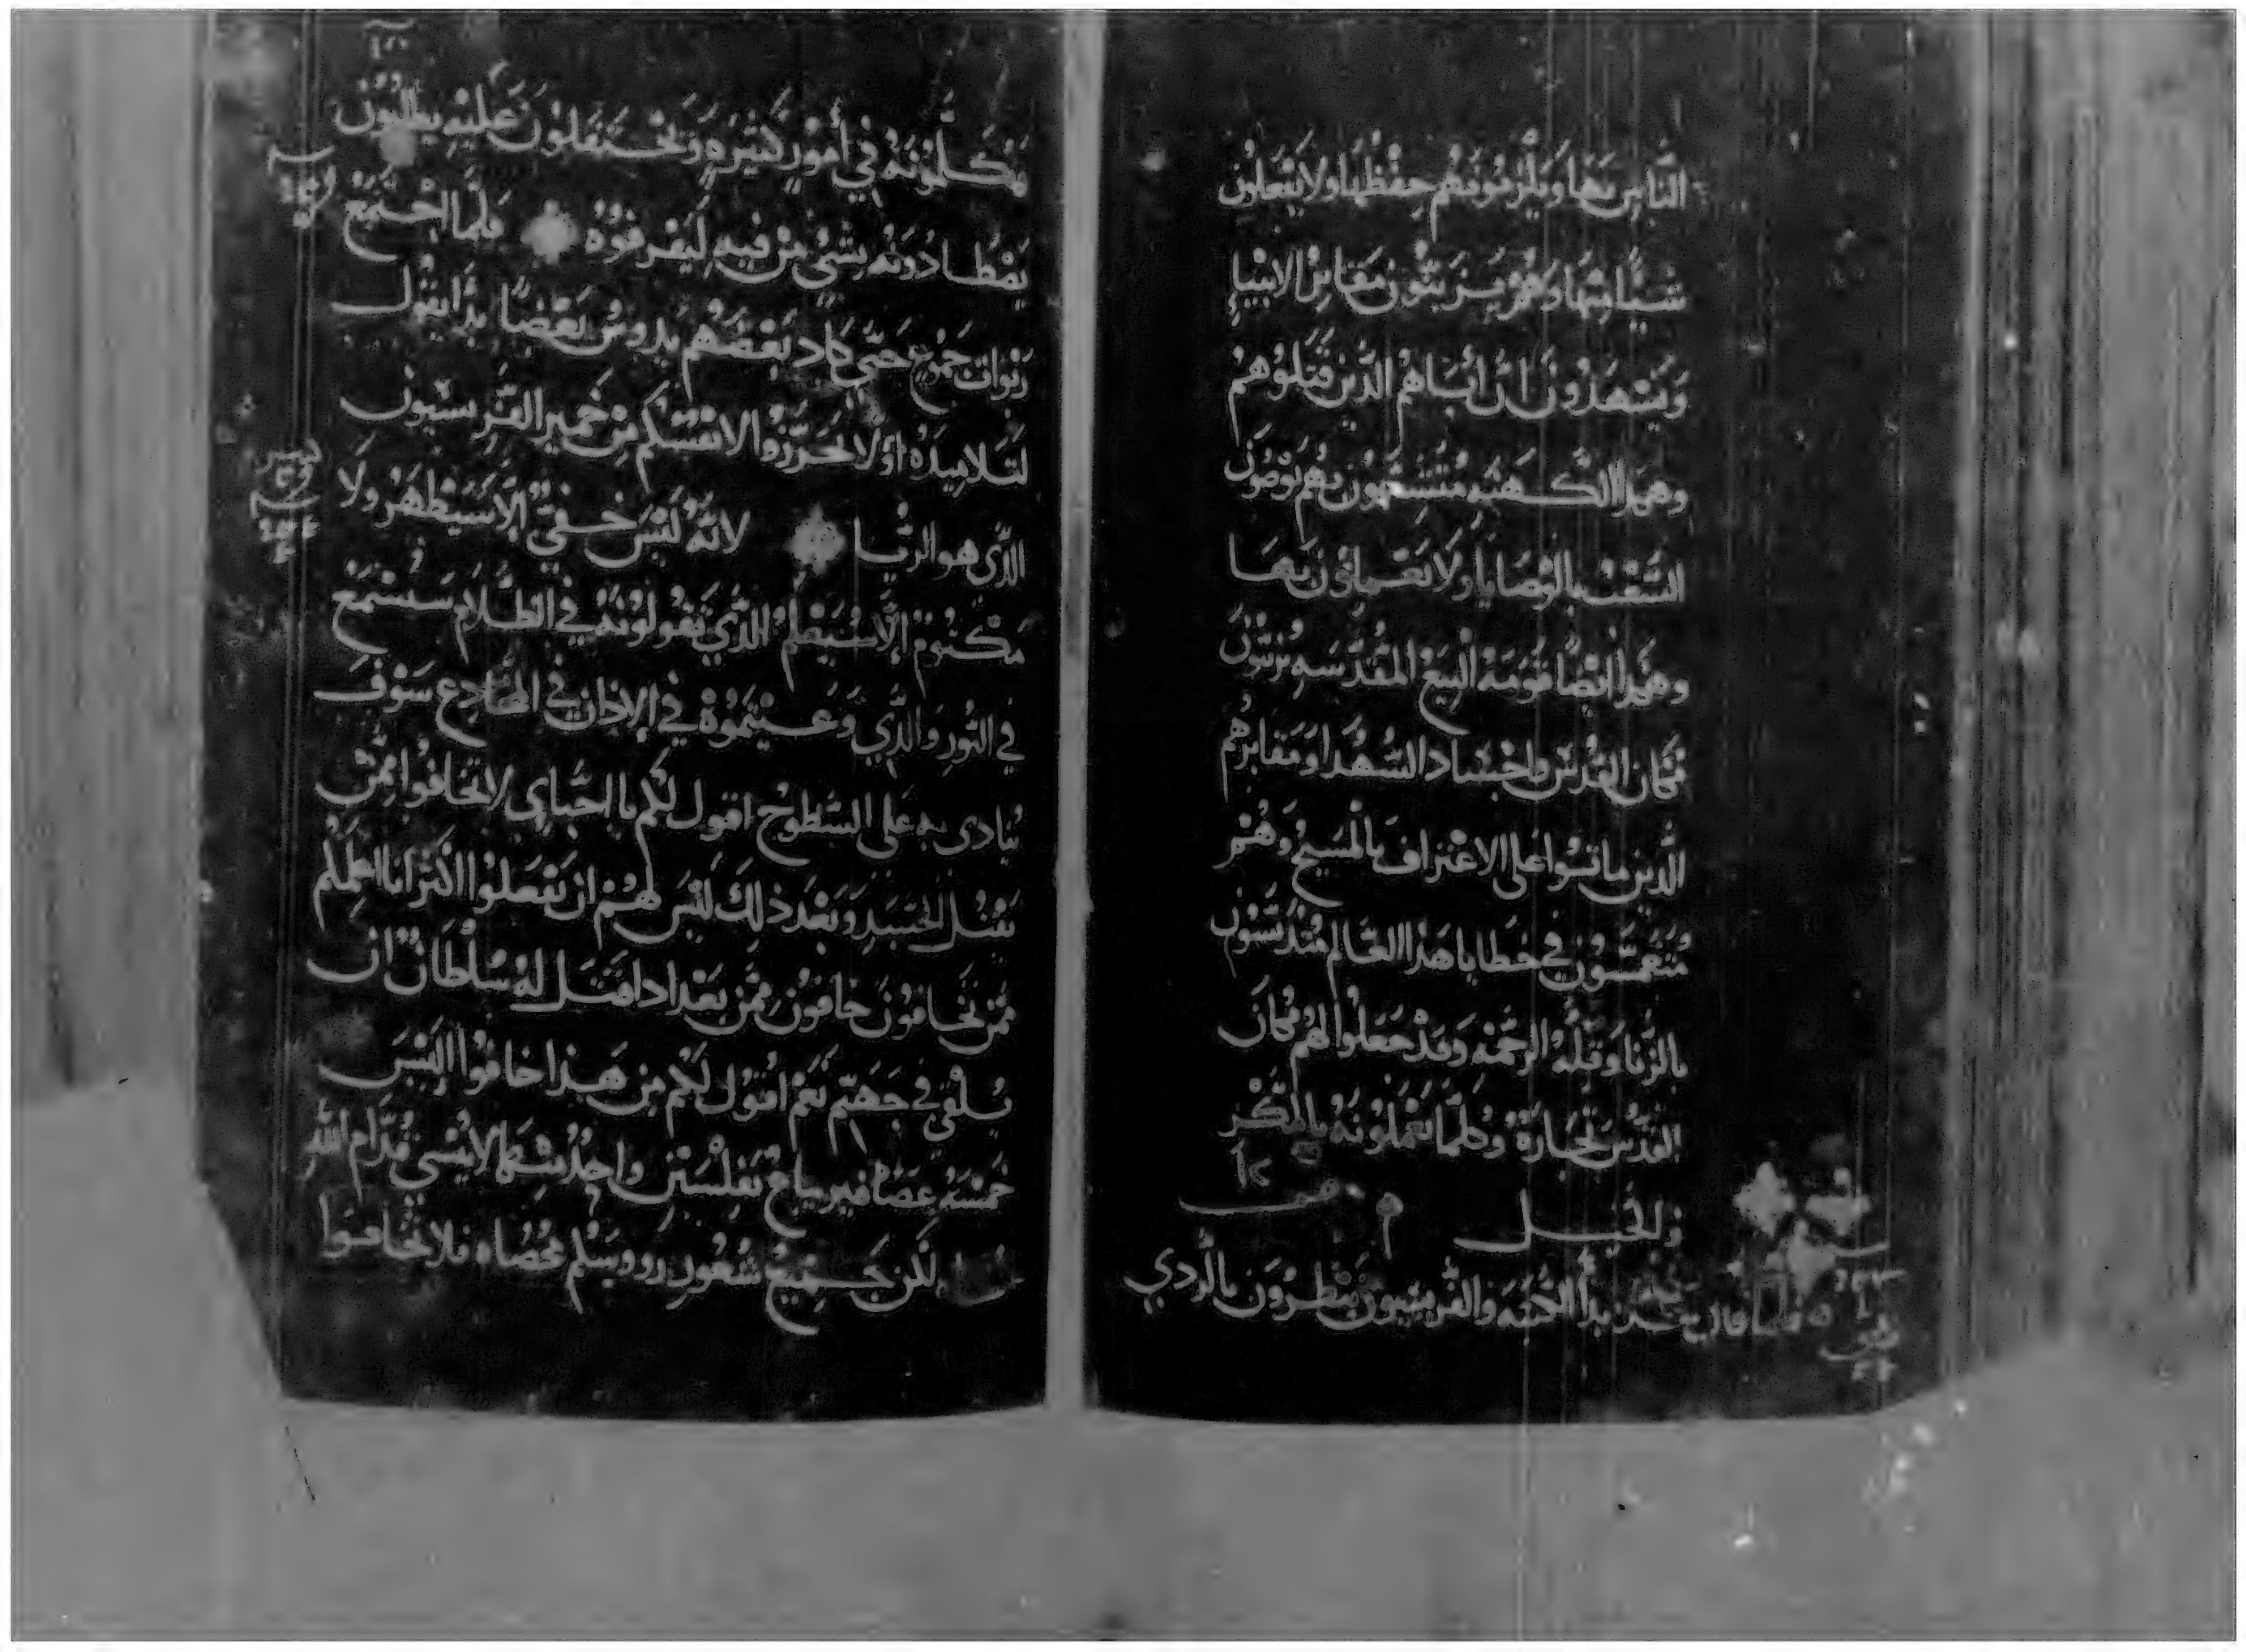 الناس بها ويلزمونهم حفظها ولا يفعلون
شيًا منها وهم يزينون مقابر الانبياء
ويشهدون ان أباهم الذين قتلوهم
وهكذا الكهنه متشبهون بهم يوصون
الشعب بالوصايا ولا يعملون بها
وهكذا ايضًا قومة البيع المقدسه يزينون
مكان القدس واجساد الشهدا ومقابرهم
الذين ماتوا على الاعتراف بالمسيح وهم
متنعمون في خطايا هذا العالم متدنسون
بالزنا وقلة الرحمه وقد جعلوا لهم مكان
القدس تجارة وكلما يعملونه بالمكر
والحيل
فلما قال بدأ الكتبه والفريسيون ينظرون بالردي
ويكلمونه في أمور كثيره ويحتفلون عليه يطلبون
يصطادونه بشي من فيه ليقرفوه فلما اجتمع
ربوات جموع حتى كاد بعضهم يدوس بعضًا بدأ يقول
لتلاميذه اولا تحرزوا لانفسكم من خمير الفريسيون
الذي هو الريا لانه ليس خفي الا سيظهر ولا
مكتوم الا سيعلم الذي تقولونه في الظلام سيسمع
في النور والذي وعيتموه في الاذان في المخادع سوف
ينادى به على السطوح اقول لكم يا احباي لا تخافوا ممن
يقتل الجسد وبعد ذلك ليس لهم ان يفعلوا اكثر انا اعلمكم
ممن تخافون خافون ممن بعد اذا قتل له سلطان ان
يلقى في جهنم نعم اقول لكم من هذا خافوا اليس
خمسة عصافير يباع بفلسين واحد منها لا ينسى قدام الله
لكن جميع شعور رووسكم محصاه فلا تخافوا